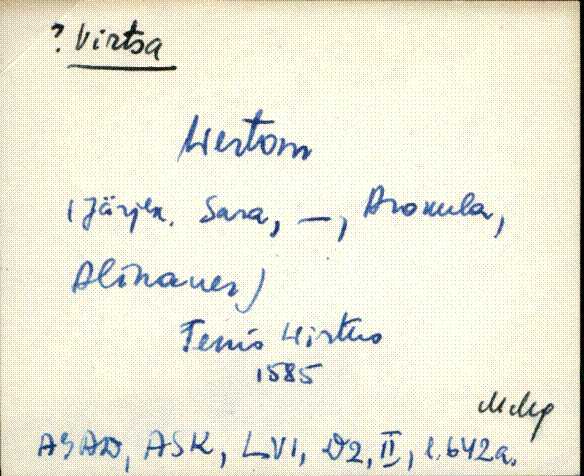 ? Virtsa
Wertom
(Järjek. Sara, —, Aromula,
Alikauer)
Tenis Wirtus
1585
AGAD, ASK, LVI, D2, II, l. 642a.